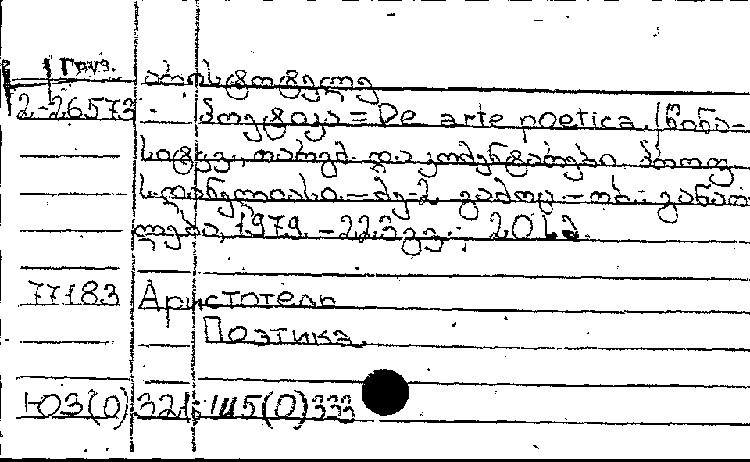 Груз.
არისტოტელე
2-26573 პოეტიკა = De arte poetica. /წინა-
სიტყვ., თარგმ. და კომენტარები პროფ.
ს. დანელიასი. – მე-2 გამოც. – თბ.: განათ-
ლება, 1979. – 223 გვ.; 20 სმ.
77183 Аристотель
Поэтика.
Ю3(0)321; Ш5(0)333